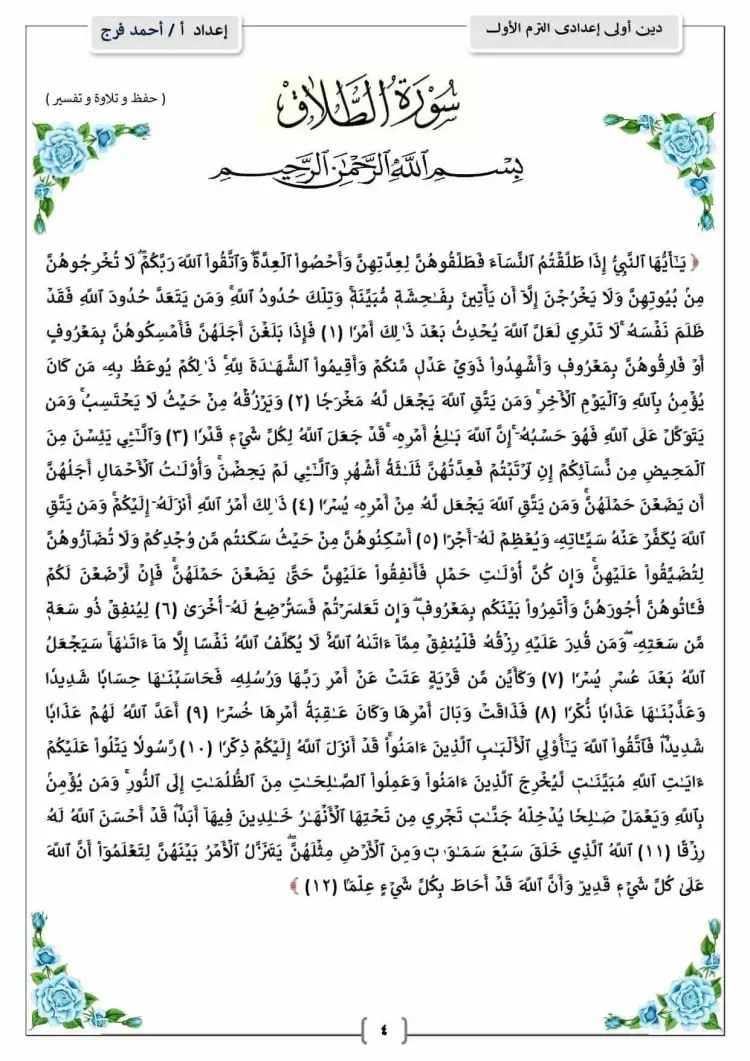 دين أولى إعدادى الترم الأول
إعداد أ / أحمد فرج
( حفظ و تلاوة و تفسير )
سُورَةُ الطَّلَاقِ
بِسْمِ اللَّهِ الرَّحْمَٰنِ الرَّحِيمِ
﴿ يَٰٓأَيُّهَا ٱلنَّبِيُّ إِذَا طَلَّقۡتُمُ ٱلنِّسَآءَ فَطَلِّقُوهُنَّ لِعِدَّتِهِنَّ وَأَحۡصُواْ ٱلۡعِدَّةَۖ وَٱتَّقُواْ ٱللَّهَ رَبَّكُمۡۖ لَا تُخۡرِجُوهُنَّ
مِنۢ بُيُوتِهِنَّ وَلَا يَخۡرُجۡنَ إِلَّآ أَن يَأۡتِينَ بِفَٰحِشَةٖ مُّبَيِّنَةٖۚ وَتِلۡكَ حُدُودُ ٱللَّهِۚ وَمَن يَتَعَدَّ حُدُودَ ٱللَّهِ فَقَدۡ
ظَلَمَ نَفۡسَهُۥۚ لَا تَدۡرِي لَعَلَّ ٱللَّهَ يُحۡدِثُ بَعۡدَ ذَٰلِكَ أَمۡرٗا (١) فَإِذَا بَلَغۡنَ أَجَلَهُنَّ فَأَمۡسِكُوهُنَّ بِمَعۡرُوفٍ
أَوۡ فَارِقُوهُنَّ بِمَعۡرُوفٖ وَأَشۡهِدُواْ ذَوَيۡ عَدۡلٖ مِّنكُمۡ وَأَقِيمُواْ ٱلشَّهَٰدَةَ لِلَّهِۚ ذَٰلِكُمۡ يُوعَظُ بِهِۦ مَن كَانَ
يُؤۡمِنُ بِٱللَّهِ وَٱلۡيَوۡمِ ٱلۡأٓخِرِۚ وَمَن يَتَّقِ ٱللَّهَ يَجۡعَل لَّهُۥ مَخۡرَجٗا (٢) وَيَرۡزُقۡهُ مِنۡ حَيۡثُ لَا يَحۡتَسِبُۚ وَمَن
يَتَوَكَّلۡ عَلَى ٱللَّهِ فَهُوَ حَسۡبُهُۥٓۚ إِنَّ ٱللَّهَ بَٰلِغُ أَمۡرِهِۦۚ قَدۡ جَعَلَ ٱللَّهُ لِكُلِّ شَيۡءٖ قَدۡرٗا (٣) وَٱلَّٰٓـِٔي يَئِسۡنَ مِنَ
ٱلۡمَحِيضِ مِن نِّسَآئِكُمۡ إِنِ ٱرۡتَبۡتُمۡ فَعِدَّتُهُنَّ ثَلَٰثَةُ أَشۡهُرٖ وَٱلَّٰٓـِٔي لَمۡ يَحِضۡنَۚ وَأُوْلَٰتُ ٱلۡأَحۡمَالِ أَجَلُهُنَّ
أَن يَضَعۡنَ حَمۡلَهُنَّۚ وَمَن يَتَّقِ ٱللَّهَ يَجۡعَل لَّهُۥ مِنۡ أَمۡرِهِۦ يُسۡرٗا (٤) ذَٰلِكَ أَمۡرُ ٱللَّهِ أَنزَلَهُۥٓ إِلَيۡكُمۡۚ وَمَن يَتَّقِ
ٱللَّهَ يُكَفِّرۡ عَنۡهُ سَيِّـَٔاتِهِۦ وَيُعۡظِمۡ لَهُۥٓ أَجۡرًا (٥) أَسۡكِنُوهُنَّ مِنۡ حَيۡثُ سَكَنتُم مِّن وُجۡدِكُمۡ وَلَا تُضَآرُّوهُنَّ
لِتُضَيِّقُواْ عَلَيۡهِنَّۚ وَإِن كُنَّ أُوْلَٰتِ حَمۡلٖ فَأَنفِقُواْ عَلَيۡهِنَّ حَتَّىٰ يَضَعۡنَ حَمۡلَهُنَّۚ فَإِنۡ أَرۡضَعۡنَ لَكُمۡ
فَـَٔاتُوهُنَّ أُجُورَهُنَّ وَأۡتَمِرُواْ بَيۡنَكُم بِمَعۡرُوفٖۖ وَإِن تَعَاسَرۡتُمۡ فَسَتُرۡضِعُ لَهُۥٓ أُخۡرَىٰ (٦) لِيُنفِقۡ ذُو سَعَةٖ
مِّن سَعَتِهِۦۖ وَمَن قُدِرَ عَلَيۡهِ رِزۡقُهُۥ فَلۡيُنفِقۡ مِمَّآ ءَاتَىٰهُ ٱللَّهُۚ لَا يُكَلِّفُ ٱللَّهُ نَفۡسًا إِلَّا مَآ ءَاتَىٰهَاۚ سَيَجۡعَلُ
ٱللَّهُ بَعۡدَ عُسۡرٖ يُسۡرٗا (٧) وَكَأَيِّن مِّن قَرۡيَةٍ عَتَتۡ عَنۡ أَمۡرِ رَبِّهَا وَرُسُلِهِۦ فَحَاسَبۡنَٰهَا حِسَابٗا شَدِيدٗا
وَعَذَّبۡنَٰهَا عَذَابٗا نُّكۡرٗا (٨) فَذَاقَتۡ وَبَالَ أَمۡرِهَا وَكَانَ عَٰقِبَةُ أَمۡرِهَا خُسۡرًا (٩) أَعَدَّ ٱللَّهُ لَهُمۡ عَذَابٗا
شَدِيدٗاۖ فَٱتَّقُواْ ٱللَّهَ يَٰٓأُوْلِي ٱلۡأَلۡبَٰبِ ٱلَّذِينَ ءَامَنُواْۚ قَدۡ أَنزَلَ ٱللَّهُ إِلَيۡكُمۡ ذِكۡرٗا (١٠) رَّسُولٗا يَتۡلُواْ عَلَيۡكُمۡ
ءَايَٰتِ ٱللَّهِ مُبَيِّنَٰتٖ لِّيُخۡرِجَ ٱلَّذِينَ ءَامَنُواْ وَعَمِلُواْ ٱلصَّٰلِحَٰتِ مِنَ ٱلظُّلُمَٰتِ إِلَى ٱلنُّورِۚ وَمَن يُؤۡمِنۢ
بِٱللَّهِ وَيَعۡمَلۡ صَٰلِحٗا يُدۡخِلۡهُ جَنَّٰتٖ تَجۡرِي مِن تَحۡتِهَا ٱلۡأَنۡهَٰرُ خَٰلِدِينَ فِيهَآ أَبَدٗاۖ قَدۡ أَحۡسَنَ ٱللَّهُ لَهُۥ
رِزۡقًا (١١) ٱللَّهُ ٱلَّذِي خَلَقَ سَبۡعَ سَمَٰوَٰتٖ وَمِنَ ٱلۡأَرۡضِ مِثۡلَهُنَّۖ يَتَنَزَّلُ ٱلۡأَمۡرُ بَيۡنَهُنَّ لِتَعۡلَمُوٓاْ أَنَّ ٱللَّهَ
عَلَىٰ كُلِّ شَيۡءٖ قَدِيرٞ وَأَنَّ ٱللَّهَ قَدۡ أَحَاطَ بِكُلِّ شَيۡءٍ عِلۡمَۢا (١٢) ﴾
٤